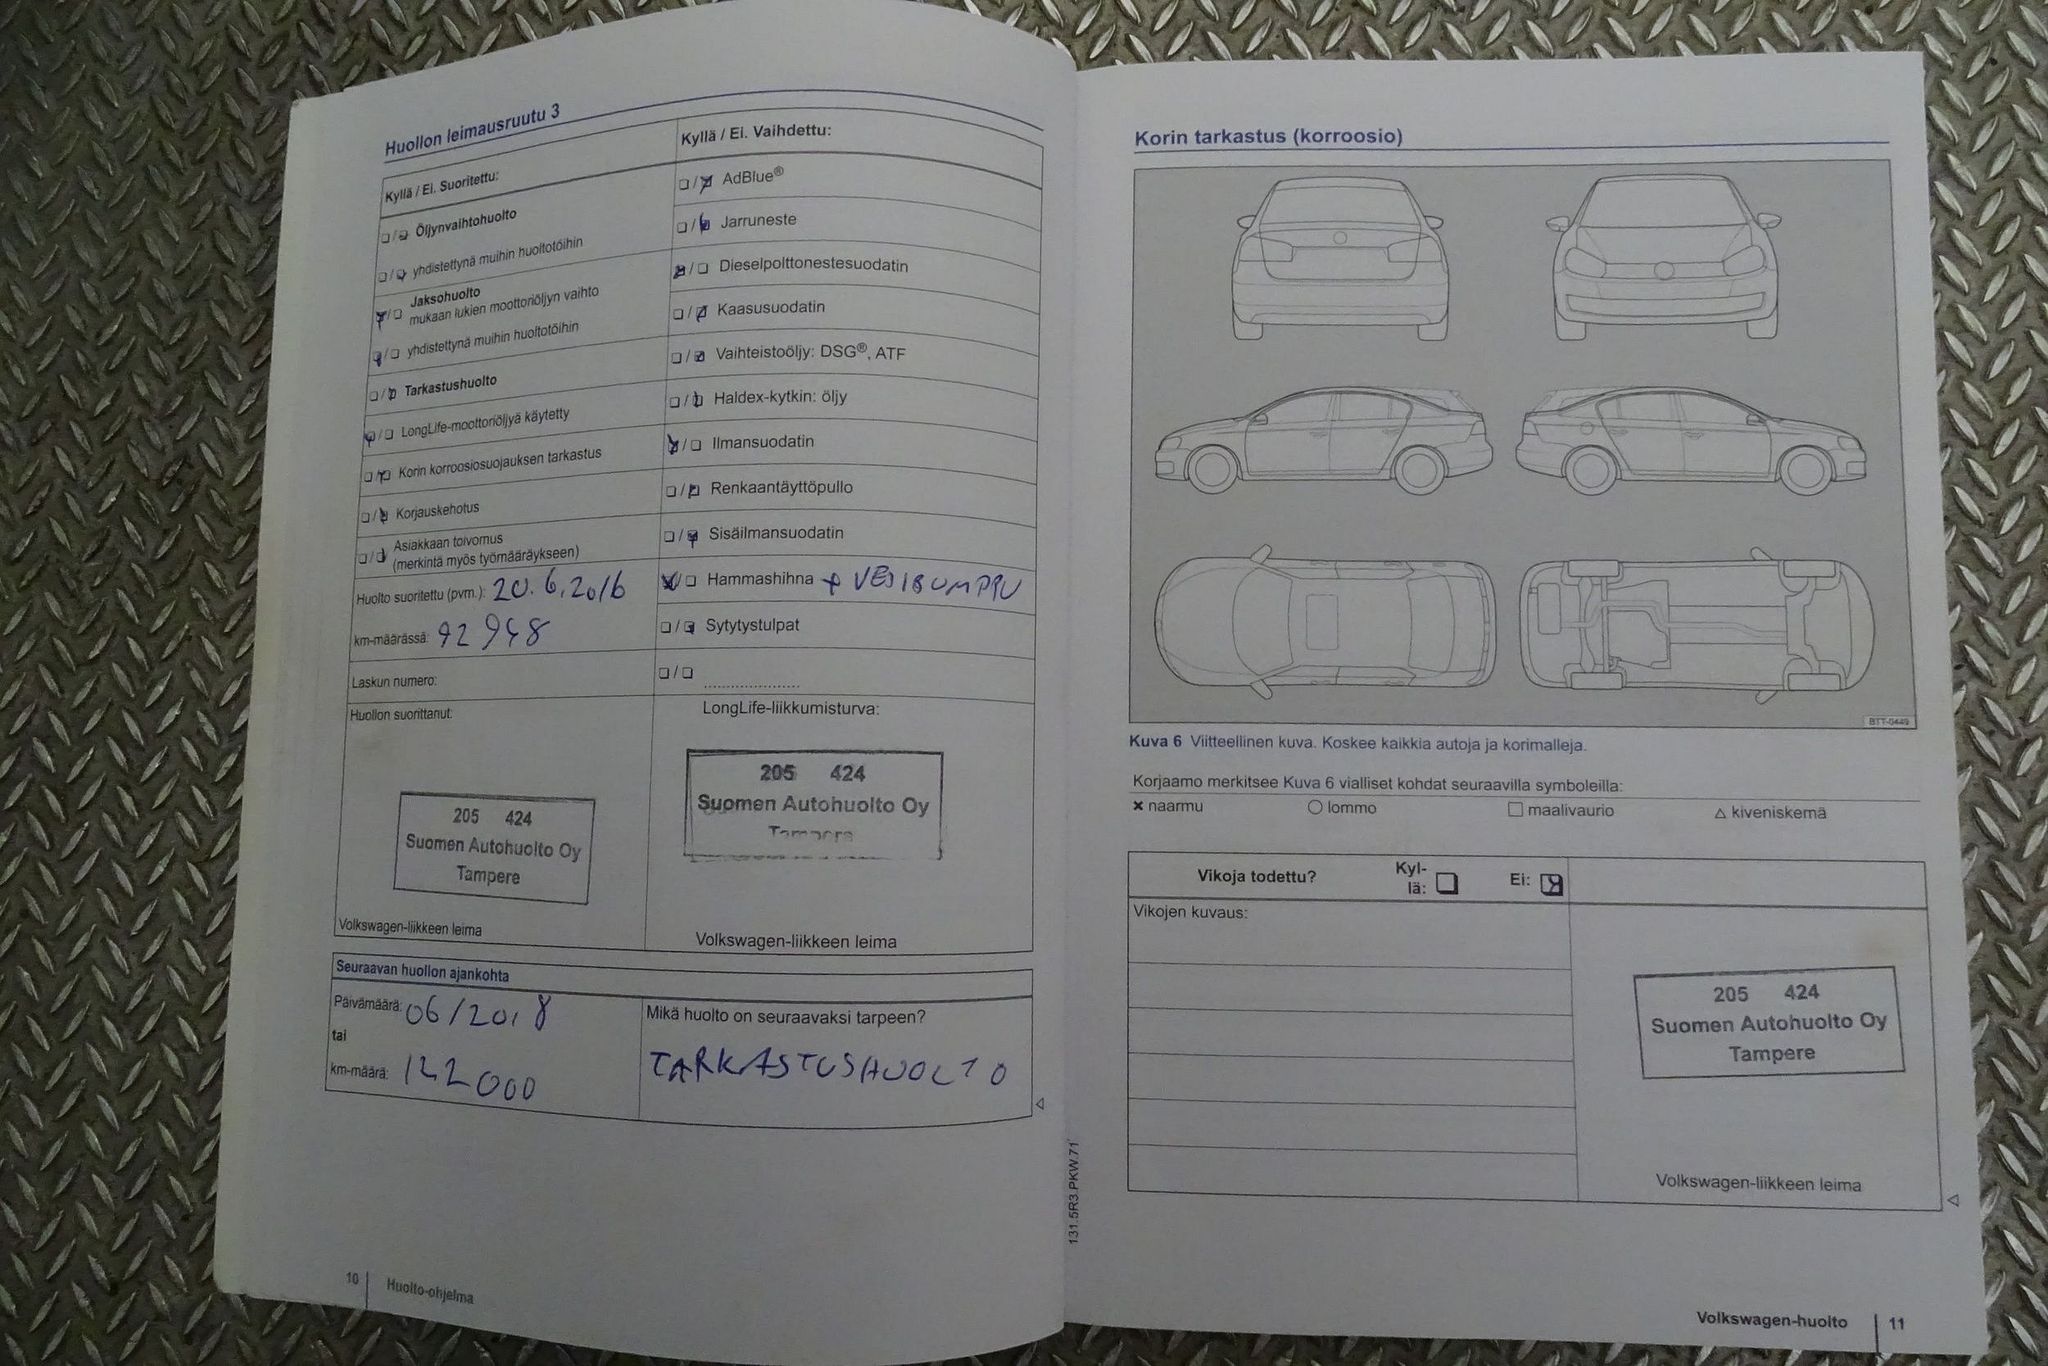 Huollon leimausruutu 3
Kyllä / Ei. Suoritettu:
Öljynvaihtohuolto
yhdistettynä muihin huoltotöihin
Jaksohuolto
mukaan lukien moottoriöljyn vaihto
yhdistettynä muihin huoltotöihin
Tarkastushuolto
LongLife-moottoriöljyä käytetty
Korin korroosiosuojauksen tarkastus
Korjauskehotus
Asiakkaan toivomus
(merkintä myös työmääräykseen)
Huolto suoritettu (pvm.): 20.6.2016
km-määrässä: 92948
Laskun numero:
Huollon suorittanut:
205 424
Suomen Autohuolto Oy
Tampere
Volkswagen-liikkeen leima
Kyllä / Ei. Vaihdettu:
AdBlue®
Jarruneste
Dieselpolttonestesuodatin
Kaasusuodatin
Vaihteistoöljy: DSG®, ATF
Haldex-kytkin: öljy
Ilmansuodatin
Renkaantäyttöpullo
Sisäilmansuodatin
Hammashihna + VESIBUMPPU
Sytytystulpat
LongLife-liikkumisturva:
205 424
Suomen Autohuolto Oy
Tampere
Volkswagen-liikkeen leima
Seuraavan huollon ajankohta
Päivämäärä: 06/2018
tai
km-määrä: 122000
Mikä huolto on seuraavaksi tarpeen?
TARKASTUSHUOLTO
10 Huolto-ohjelma
131.5R3.PKW.71
Korin tarkastus (korroosio)
BTT-0449
Kuva 6 Viitteellinen kuva. Koskee kaikkia autoja ja korimalleja.
Korjaamo merkitsee Kuva 6 vialliset kohdat seuraavilla symboleilla:
✖ naarmu ○ lommo □ maalivaurio △ kiveniskemä
Vikoja todettu? Kyl-
lä: Ei:
Vikojen kuvaus:
205 424
Suomen Autohuolto Oy
Tampere
Volkswagen-liikkeen leima
Volkswagen-huolto 11